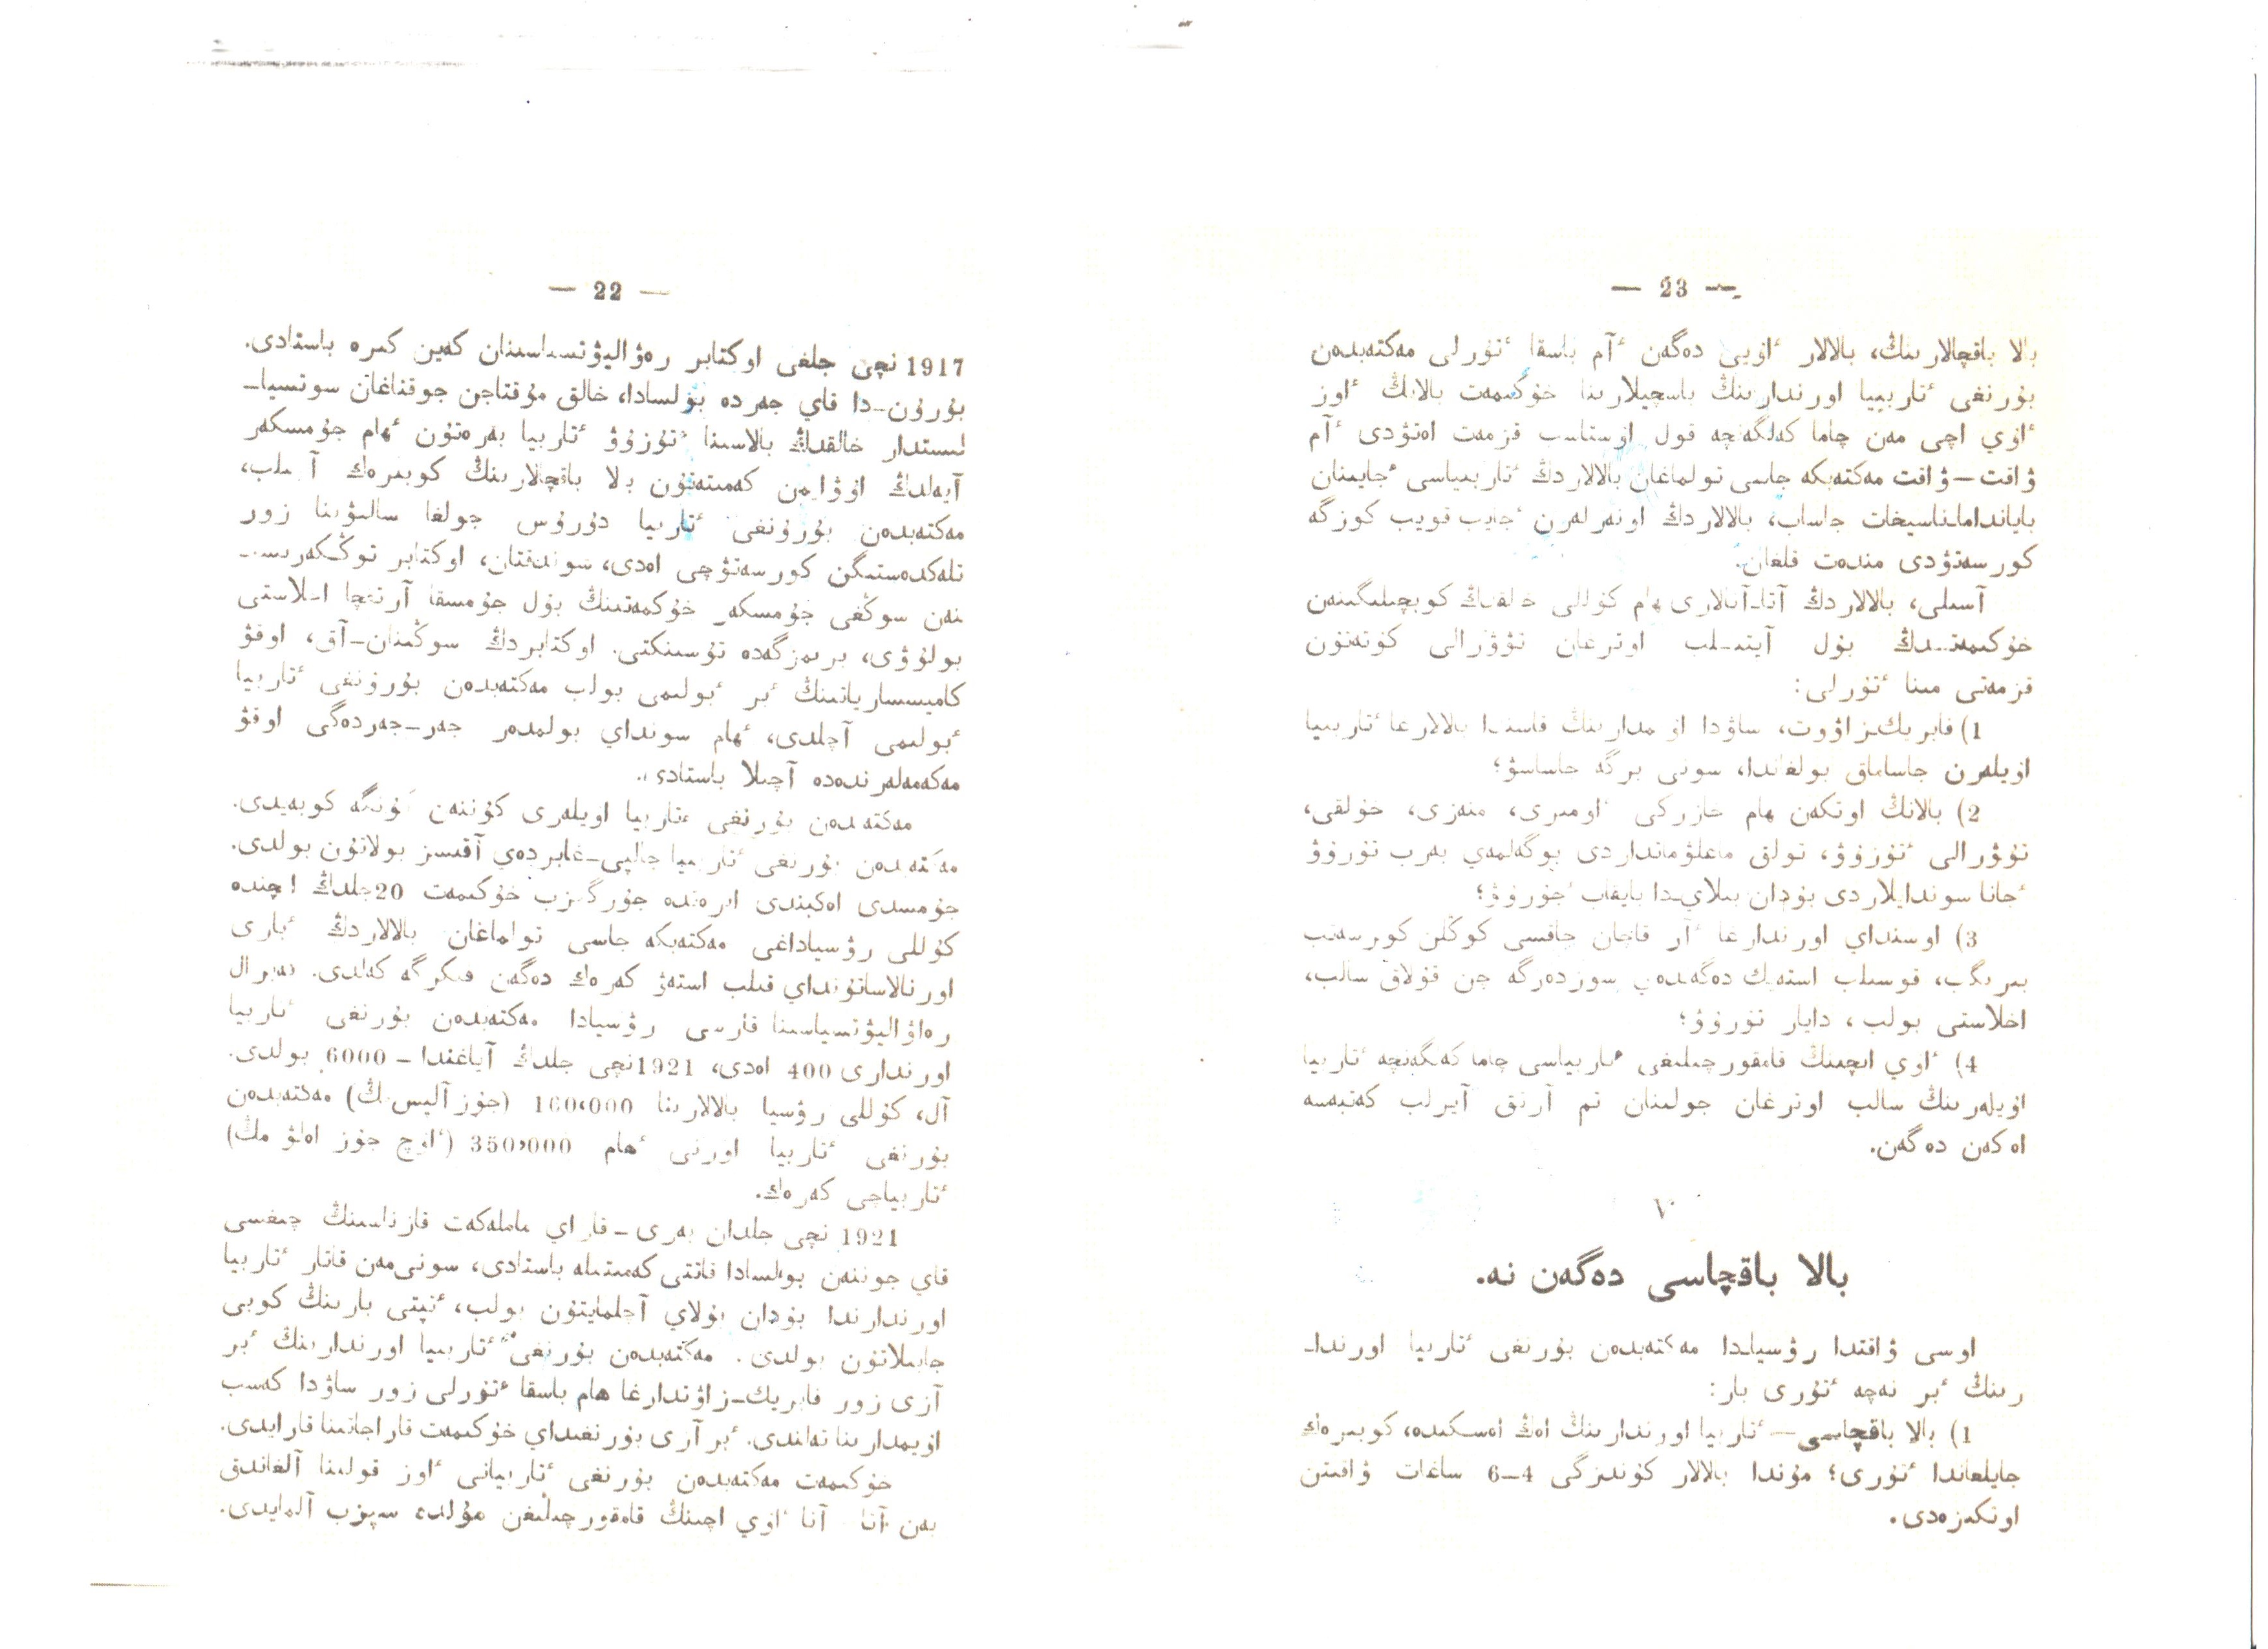 — 22 —
1917 نچی جلغی اوكتابر رەۋاليۋتسىياسىنان كەين كىرە باستادى.
بۇرۇن-دا قاي جەردە بۇلسادا، خالق مۇقتاجن جوقتاغان سوتسيا-
لىستدار خالقدىڭ بالاسىنا ٴتۇزۇۋ ٴتاربيا بەرەتۇن ٴهام جۇمىسكەر
آيەلدىڭ كەمىتەتۇن بالا باقچالارىنىڭ كوبىرەك
مەكتەبدەن بۇرۇنغى ٴتاربيا دۇرۇس جولغا سالىۋىنا زور
تلەكدەستىگىن كورسەتۇچی اەدی، سوندقتان، اوكتابر توڭكەرىسى-
نەن سوڭغی جۇمىسكەر خۇكمەتىنىڭ بۇل جۇمىسقا آرتىقچا اىلاستی
بولۇۋی، برىمزگەدە تۇسىنىكتی. اوكتابردىڭ سوڭىنان-آق، اوقۋ
كاميسسارياتىنىڭ ٴبر ٴبولىمی بولب مەكتەبدەن بۇرۇنغی ٴتاربيا
ٴبولىمی آچلدی، ٴهام سونداي بولىمدەر جەر-جەردەگی اوقۋ
مەكەمەلەرندەدە آچىلا باستادی.
مەكتەبدەن بۇرنغی ٴتاربيا اويلەری كۇننەن كۇنگە كوبەيدی.
مەكتەبدەن بۇرنغی ٴتاربىيا جالپی-غابردەي آقىسز بولاتۇن بولدی.
جۇمىسدی اەكىندی اىرەتدە جۇرگىزب خۇكىمەت 20 جلدىڭ اٴچندە
كۇللی رۇسياداغی مەكتەبكە جاسی تولماغان بالالاردىڭ ٴباری
اورنالاساتۇنداي قىلب استەۋ كەرەك دەگەن فىكرگە كەلدی. فەبرال
رەۋاليۋتسياسىنا قارسی رۇسيادا مەكتەبدەن بۇرنغی ٴتاربيا
اورنداری 400 اەدی، 1921 نچی جلدىڭ آياغندا – 6000 بولدی.
آل، كۇللی رۇسيا بالالارىنا 160،000 (جۇز آلپس مىڭ) مەكتەبدەن
بۇرنغی ٴتاربيا اورنی ٴهام 350،000 (ٴاوچ جۇز اەلۋ مىڭ)
ٴتاربياچی كەرەك.
1921 نچی جلدان بەری – قاراي مامىلەكەت قازناسىنىڭ چىغىسی
قاي جوننەن بولسادا قاتتی كەمىتىلە باستادی، سونىمەن قاتار ٴتاربيا
اورندارندا بۇدان بۇلاي آچلمايتۇن بولب، ٴتىپتی بارىنىڭ كوبی
جابىلاتۇن بولدی. مەكتەبدەن بۇرنغی ٴتاربىيا اورندارىنىڭ ٴبر
آزی زور فابريك-زاۋتدارغا هام باسقا ٴتۇرلی زور ساۋدا كەسب
اۇيىمدارىنا تەلندی. ٴبر آری بۇرنغىداي خۇكىمەت قاراجاتىنا قارايدی.
خۇكىمەت مەكتەبدەن بۇرنغی ٴتاربيانی ٴاوز قولىنا آلغاندىق
بەن آتا آنا ٴاۇي اچىنىڭ قامقورچىلىغن مۇلدە سىپزب آلمايدی.
— 23 —
بالا باقچالارىنىڭ، بالالار ٴاۇيی دەگەن ٴآم باسقا ٴتۇرلی مەكتەبدەن
بۇرنغی ٴتاربىيا اورندارىنىڭ باسچىلارىنا خۇكىمەت بالانىڭ ٴاوز
ٴاۇي اچی مەن چاما كەلگەنچە قول اۇستاسب قزمەت اەتۋدی ٴآم
ۋاقت – ۋاقت مەكتەبكە جاسی تولماغان بالالاردىڭ ٴتاربىياسی ٴجايىنان
بايانداما-ناسيخات جاساب، بالالاردىڭ اونەرلەرن ٴجايب قويب كوزگە
كورسەتۋدی مندەت قلغان.
آسىلی، بالالاردىڭ آتا-آنالاری هام كۇللی خالقدىڭ كوبچىلىگىنەن
خۇكىمەتدىڭ بۇل آيتىلب اوترغان تۋۋرالی كۇتەتۇن
قزمەتی مىنا ٴتۇرلی:
1) فابريك-زاۋوت، ساۋدا اۇيىمدارىنىڭ قاسىندا بالالارغا ٴتاربىيا
اۇيلەرن جاساماق بولغاندا، سونی برگە جاساسۋ؛
2) بالانىڭ اوتكەن هام حازركی ٴاومىری، مىنەزی، خۇلقی،
تۇۋرالی ٴتۇزۇۋ، تولق ماعلۇماتداردی بوگەلمەي بەرب تۇرۇۋ
ٴجانا سوندايلاردی بۇدان بىلاي-دا بايقاب ٴجۇرۇۋ؛
3) اوسىنداي اورندارغا ٴآر قاچان جاقسی كوڭلن كورسەتب
بىرىگىب، قوسىلب استەيك دەگەندەي سوزدەرگە چن قۇلاق سالب،
اخلاستی بولب، دايار تۇرۇۋ؛
4) ٴاوي اىچىنىڭ قامقورچىلىغی ٴتاربياسی چاما كەلگەنچە ٴتاربيا
اۇيلەرىنىڭ سالب اوترغان جولىنان تم آرتق آيرلب كەتبەسە
اەكەن دەگەن.
V
بالا باقچاسی دەگەن نە.
اوسی ۋاقتدا رۋسيادا مەكتەبدەن بۇرنغی ٴتاربيا اورندا-
رىنىڭ ٴبر نەچە ٴتۇری بار:
1) بالا باقچاسی — ٴتاربيا اورندارىنىڭ اەڭ اەسكىدە، كوبىرەك
جايلغاندا ٴتۇری؛ مۇندا بالالار كۇندىزگی 4–6 ساغات ۋاقىتن
اوتكىزەدی.